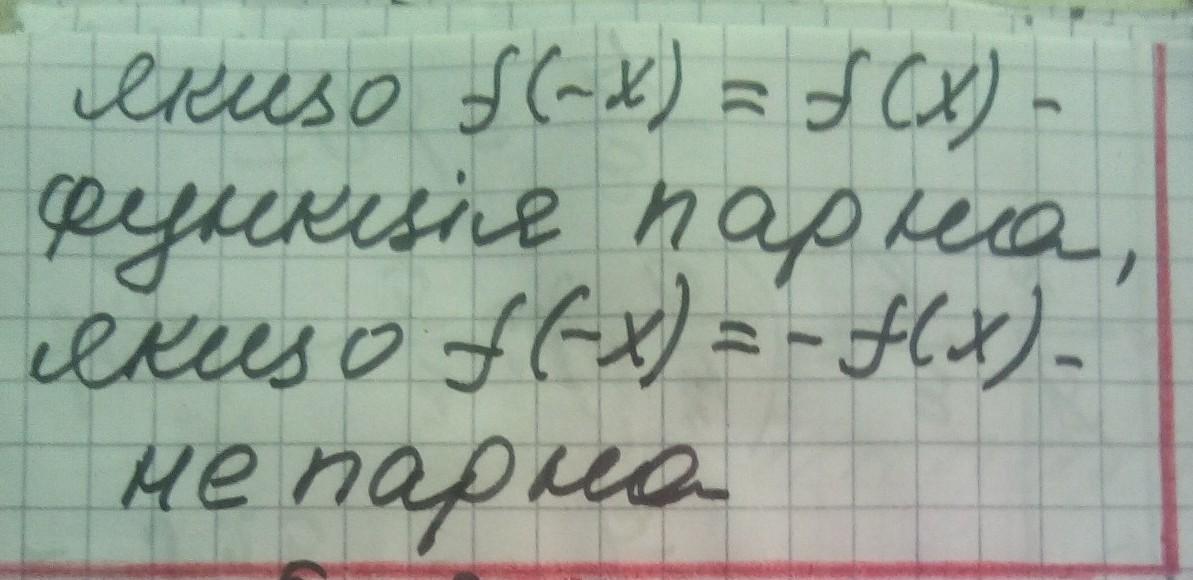 якщо f(-x) = f(x) -
функція парна,
якщо f(-x) = - f(x) -
не парна